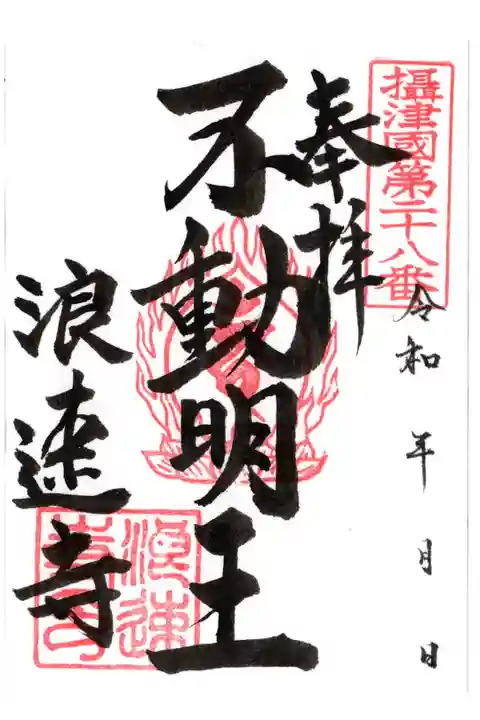 攝津國第二十八番
令和 年 月 日
奉拝
不動明王
浪速寺
浪速寺印